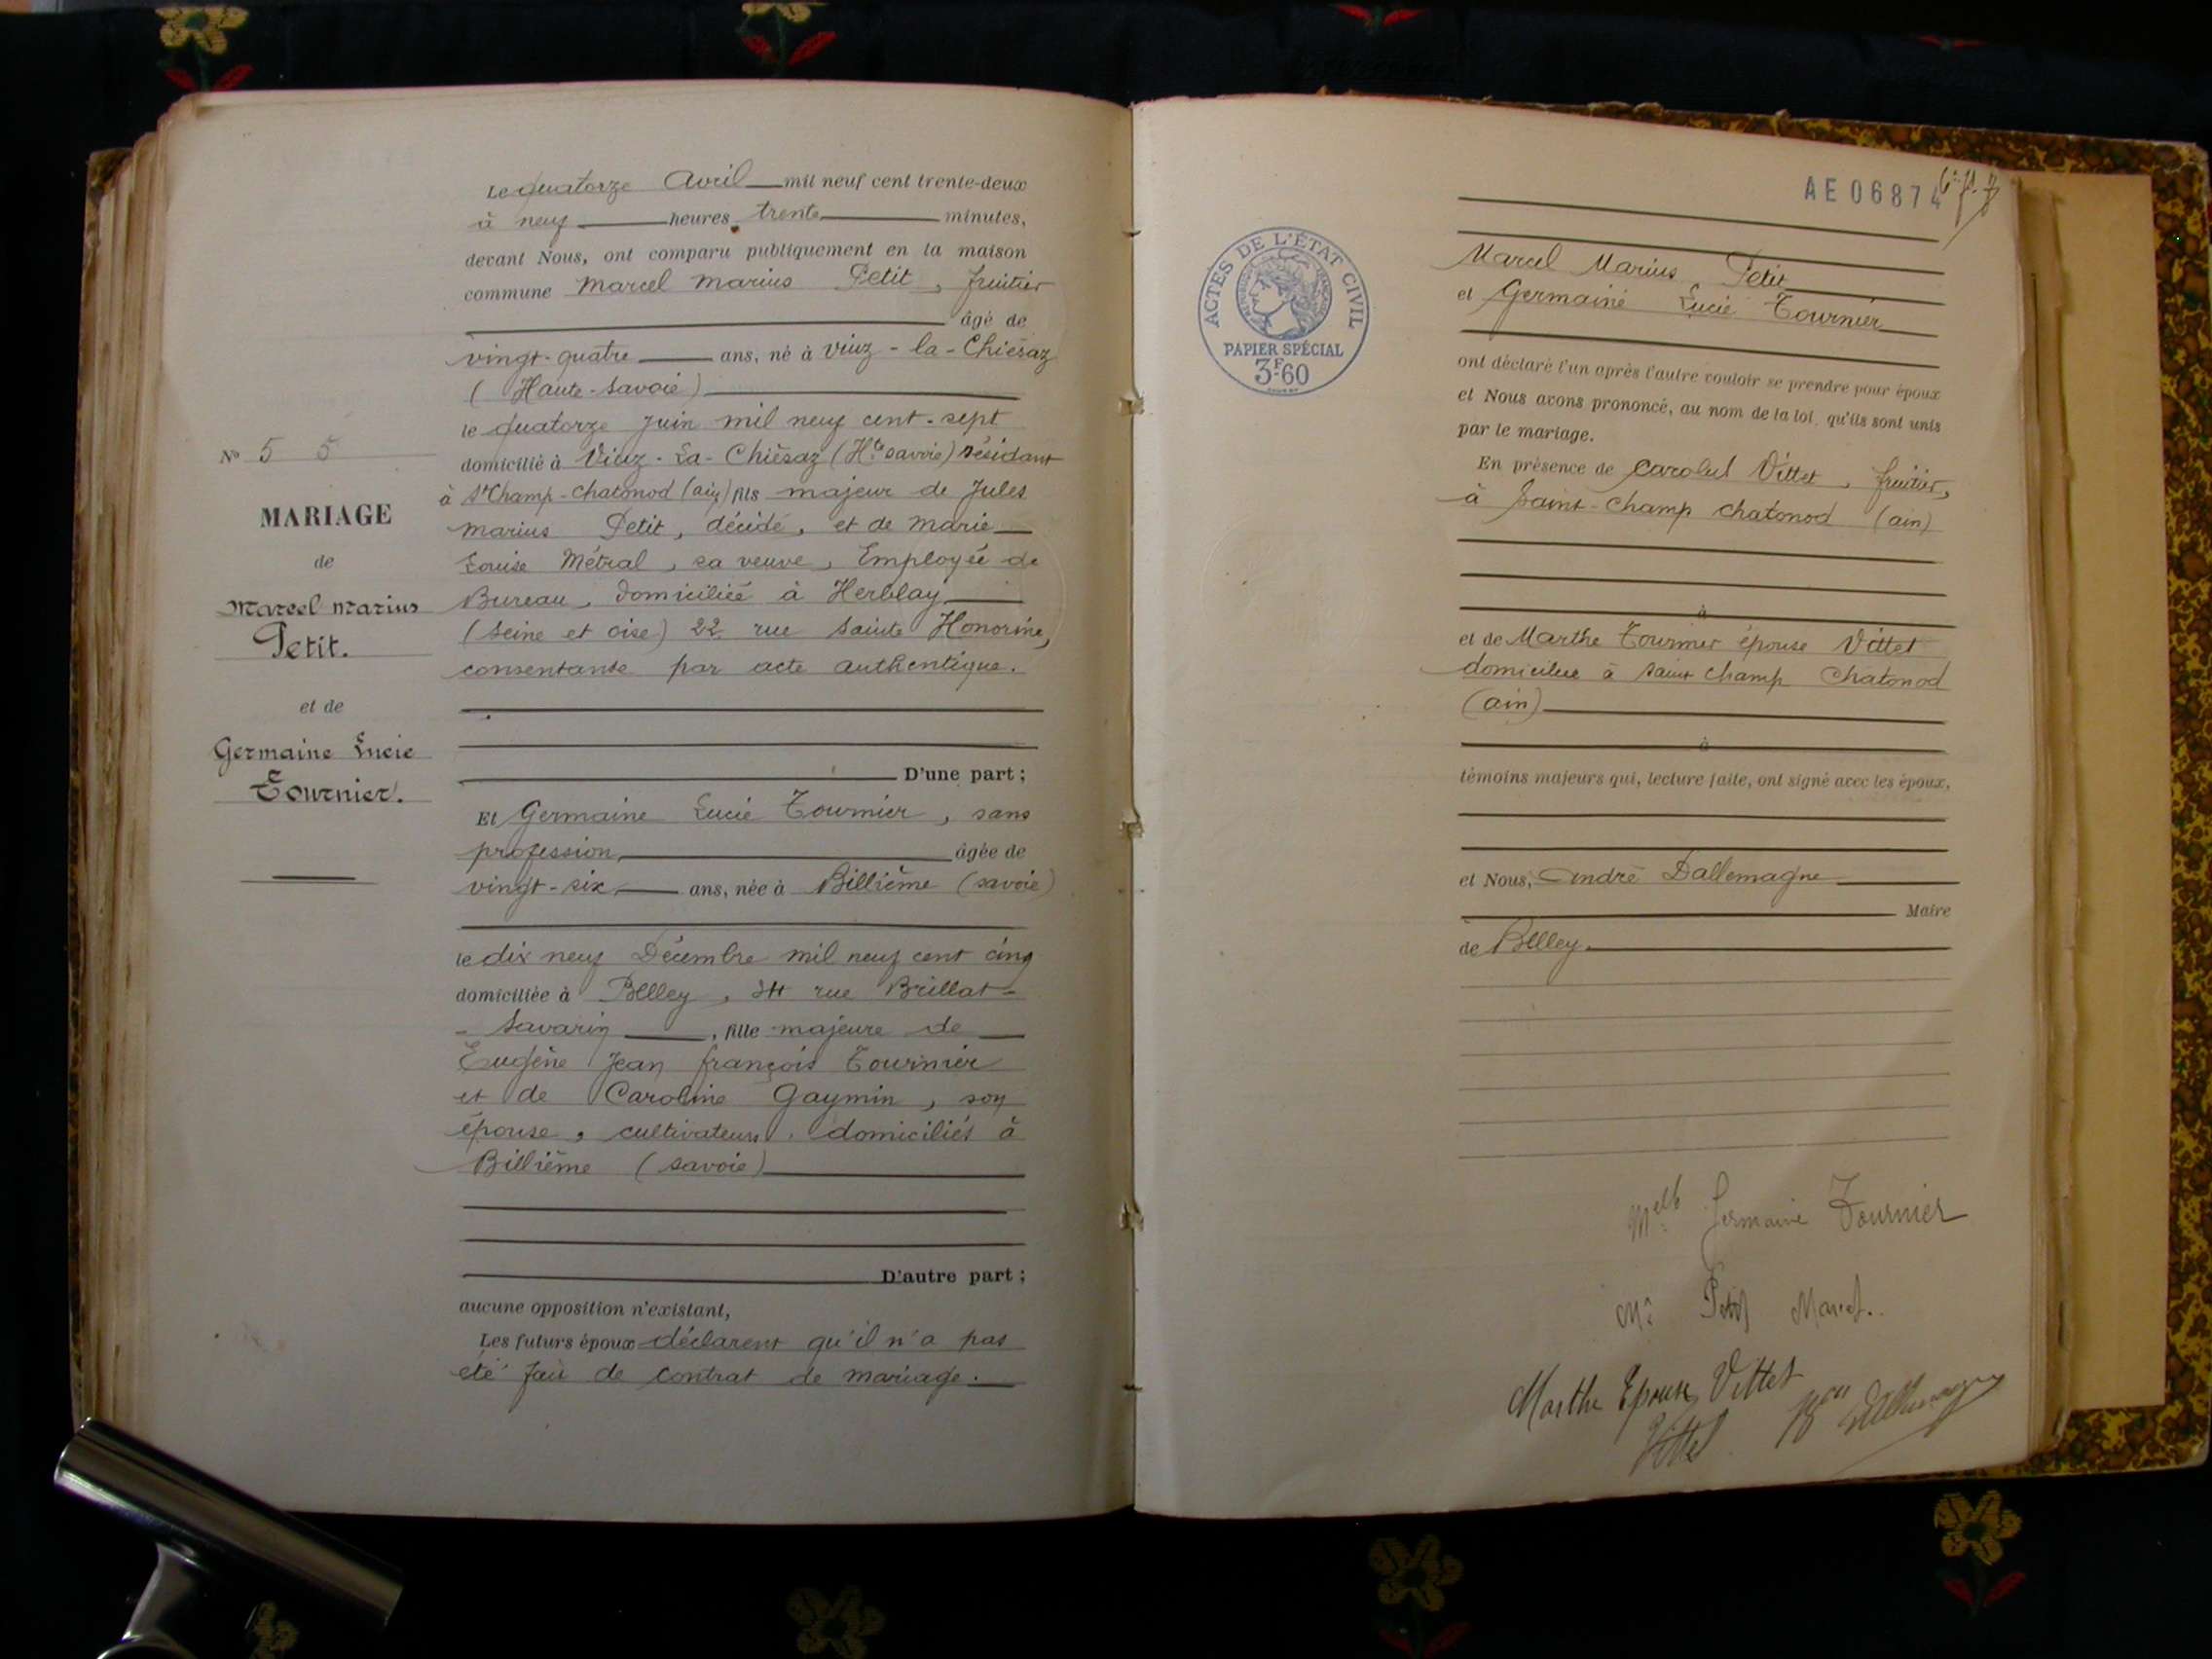 Nº 5 5
MARIAGE
de
Marcel Marius
Petit.
et de
Germaine Lucie
Tournier.
Le quatorze Avril mil neuf cent trente-deux
à neuf heures trente minutes,
devant Nous, ont comparu publiquement en la maison
commune Marcel Marius Petit, fruitier
âgé de
vingt-quatre ans, né à Viuz-la-Chiésaz
(Haute-Savoie)
le quatorze Juin mil neuf cent-sept
domicilié à Viuz-La-Chiésaz (Hte Savoie) résidant
à St Champ-Chatonod (ain) fils majeur de Jules
Marius Petit, décidé, et de Marie
Louise Métral, sa veuve, Employée de
Bureau, domiciliée à Herblay
(Seine et oise) 22 rue Sainte Honorine,
consentante par acte authentique.
D'une part ;
Et Germaine Lucie Tournier, sans
profession, âgée de
vingt-six ans, née à Billième (savoie)
le dix neuf Décembre mil neuf cent cinq
domiciliée à Belley, 34 rue Brillat-
-Savarin, fille majeure de
Eugène Jean françois Tournier
et de Caroline Gaymin, son
épouse, cultivateurs, domiciliés à
Billième (savoie)
D'autre part ;
aucune opposition n'existant,
Les futurs époux déclarent qu'il n'a pas
été fait de contrat de mariage.
AE06874
ACTES DE L'ÉTAT CIVIL
PAPIER SPÉCIAL
3F.60
Marcel Marius Petit
et Germaine Lucie Tournier
ont déclaré l'un après l'autre vouloir se prendre pour époux
et Nous avons prononcé, au nom de la loi, qu'ils sont unis
par le mariage.
En présence de Carolus Vittet, fruitier,
à Saint-Champ Chatonod (ain)
à
et de Marthe Tournier épouse Vittet
domiciliée à Saint Champ Chatonod
(ain)
à
témoins majeurs qui, lecture faite, ont signé avec les époux,
et Nous, André Dallemagne
Maire
de Belley.
Melle Germaine Tournier
Mr Petit Marcel.
Marthe Epouse Vittet
Vittet Dallemagne